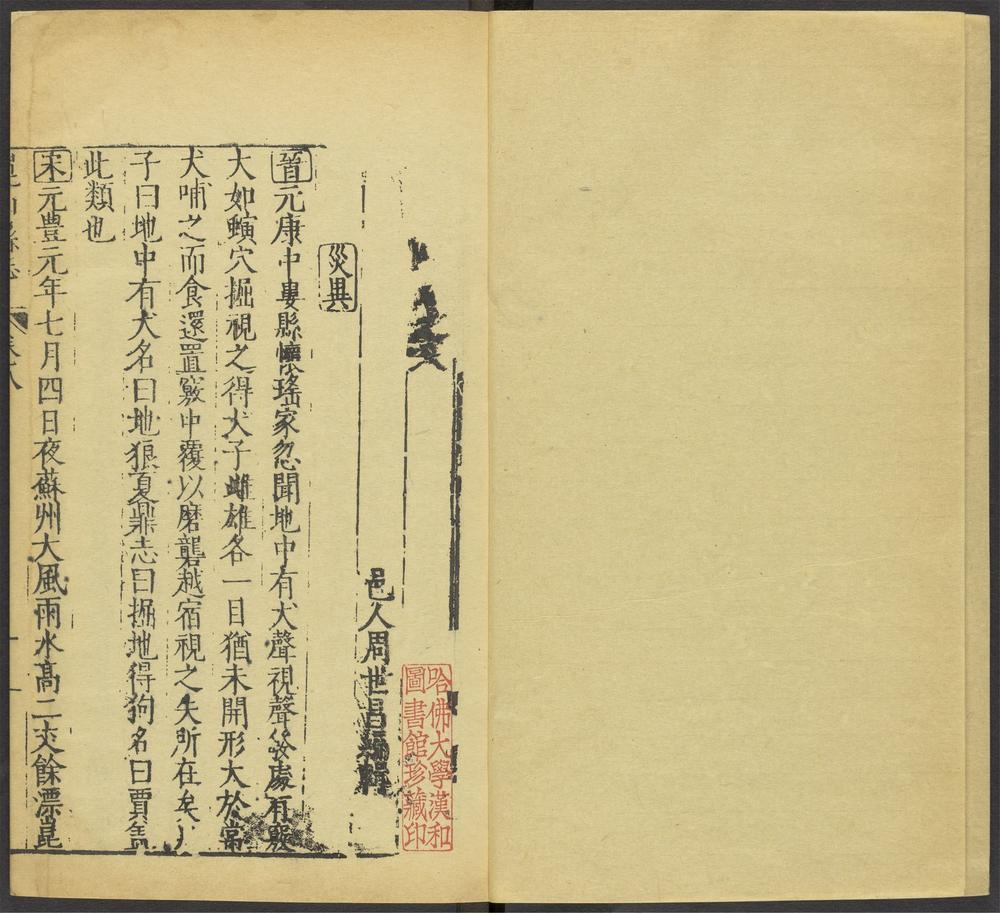 邑人周世昌編輯
災異
晉元康中婁縣懷瑤家忽聞地中有犬聲視聲發處有竅
大如螾穴掘視之得犬子雌雄各一目猶未開形大於常
犬哺之而食還置竅中覆以磨礱越宿視之失所在矣尸
子曰地中有犬名曰地狼夏鼎志曰掘地得狗名曰賈
此類也
宋元豊元年七月四日夜蘇州大風雨水高二丈餘漂崑
卷八
哈佛大學漢和
圖書館珍藏印